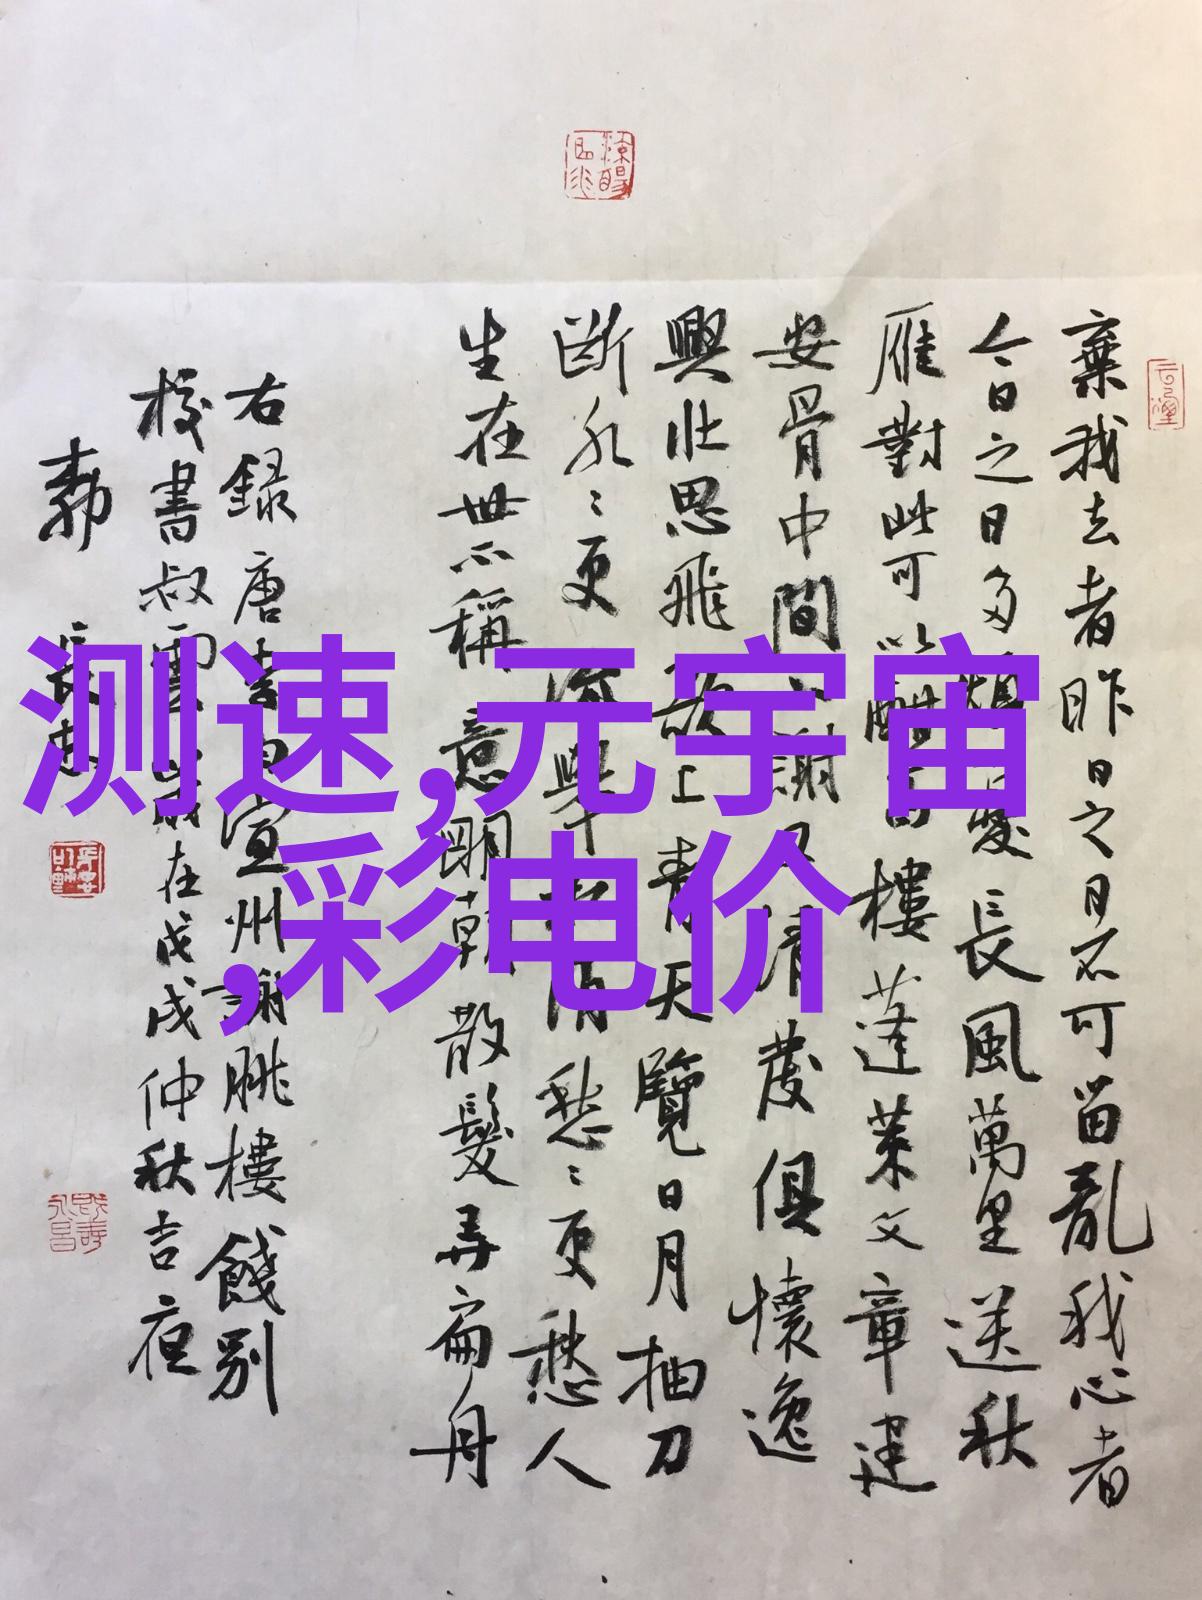 测速,元宇宙
,彩电价
棄我去者昨日之日不可留亂我心者
今日之日多煩憂長風萬里送秋
雁對此可以酣高樓蓬萊文章建
安骨中間小謝又清發俱懷逸
興壯思飛欲上青天覽日月抽刀
斷水〻更流舉杯消愁〻更愁人
生在世不稱意明朝散髮弄扁舟
右録唐李白宣州謝朓樓餞別
校書叔雲歲在戊戌仲秋吉夜